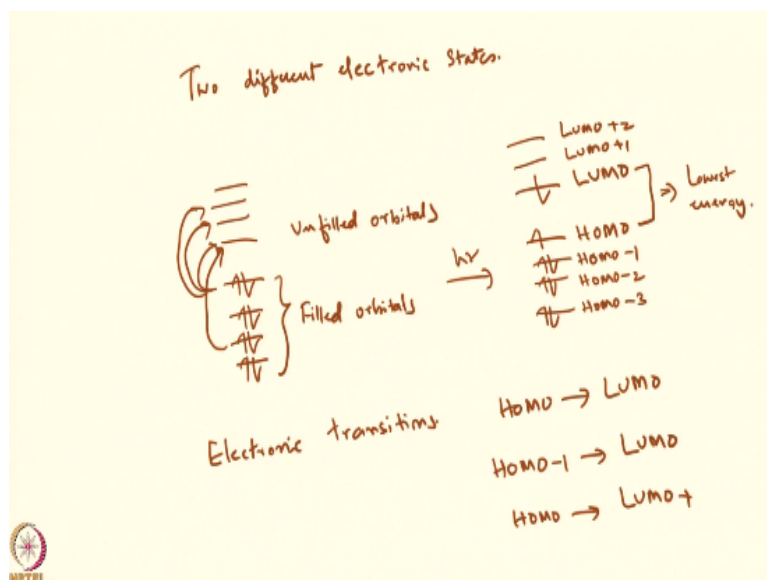 Two different electronic states.
Unfilled orbitals
Filled orbitals
hν
LUMO+2
LUMO+1
LUMO
HOMO
HOMO-1
HOMO-2
HOMO-3
⇒ Lowest
energy.
Electronic transitions
HOMO → LUMO
HOMO-1 → LUMO
HOMO → LUMO+
NPTEL